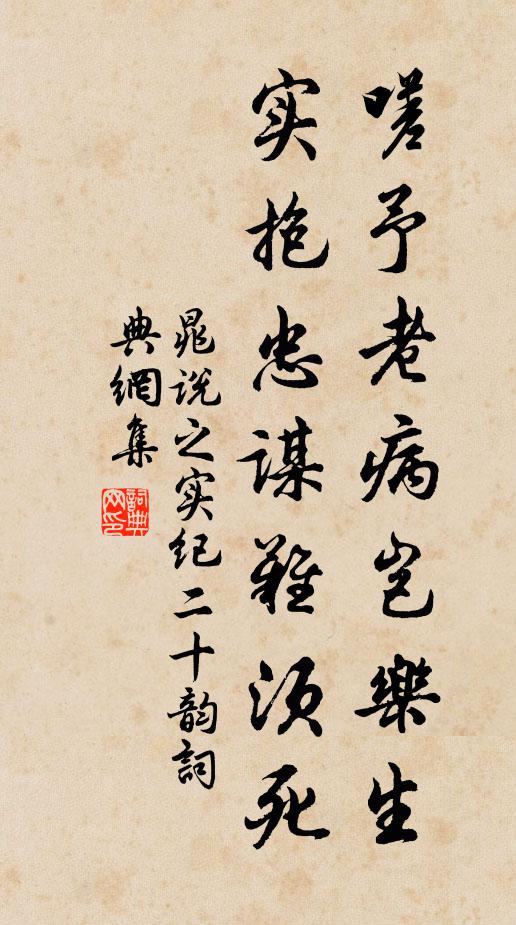 嗟予老病岂樂生
实抱忠謀難须死
晁说之实纪二十韵詞
典網集
詞典网印